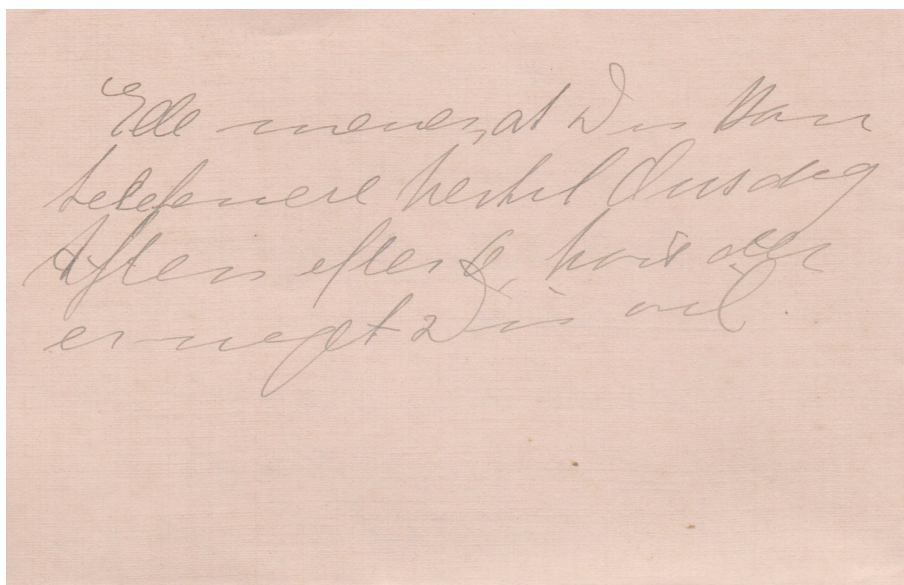 Ede mener, at Du kan
telefonere hertil Onsdag
Aften efter 8, hvis der
er noget Du vil.